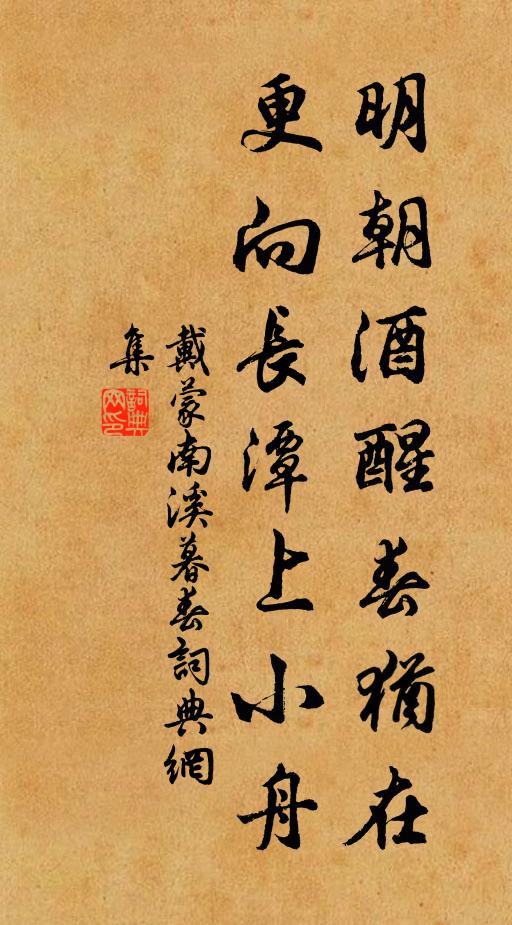 明朝酒醒春猶在
更向長潭上小舟
戴蒙南溪暮春詞典網
集
詞典
网印